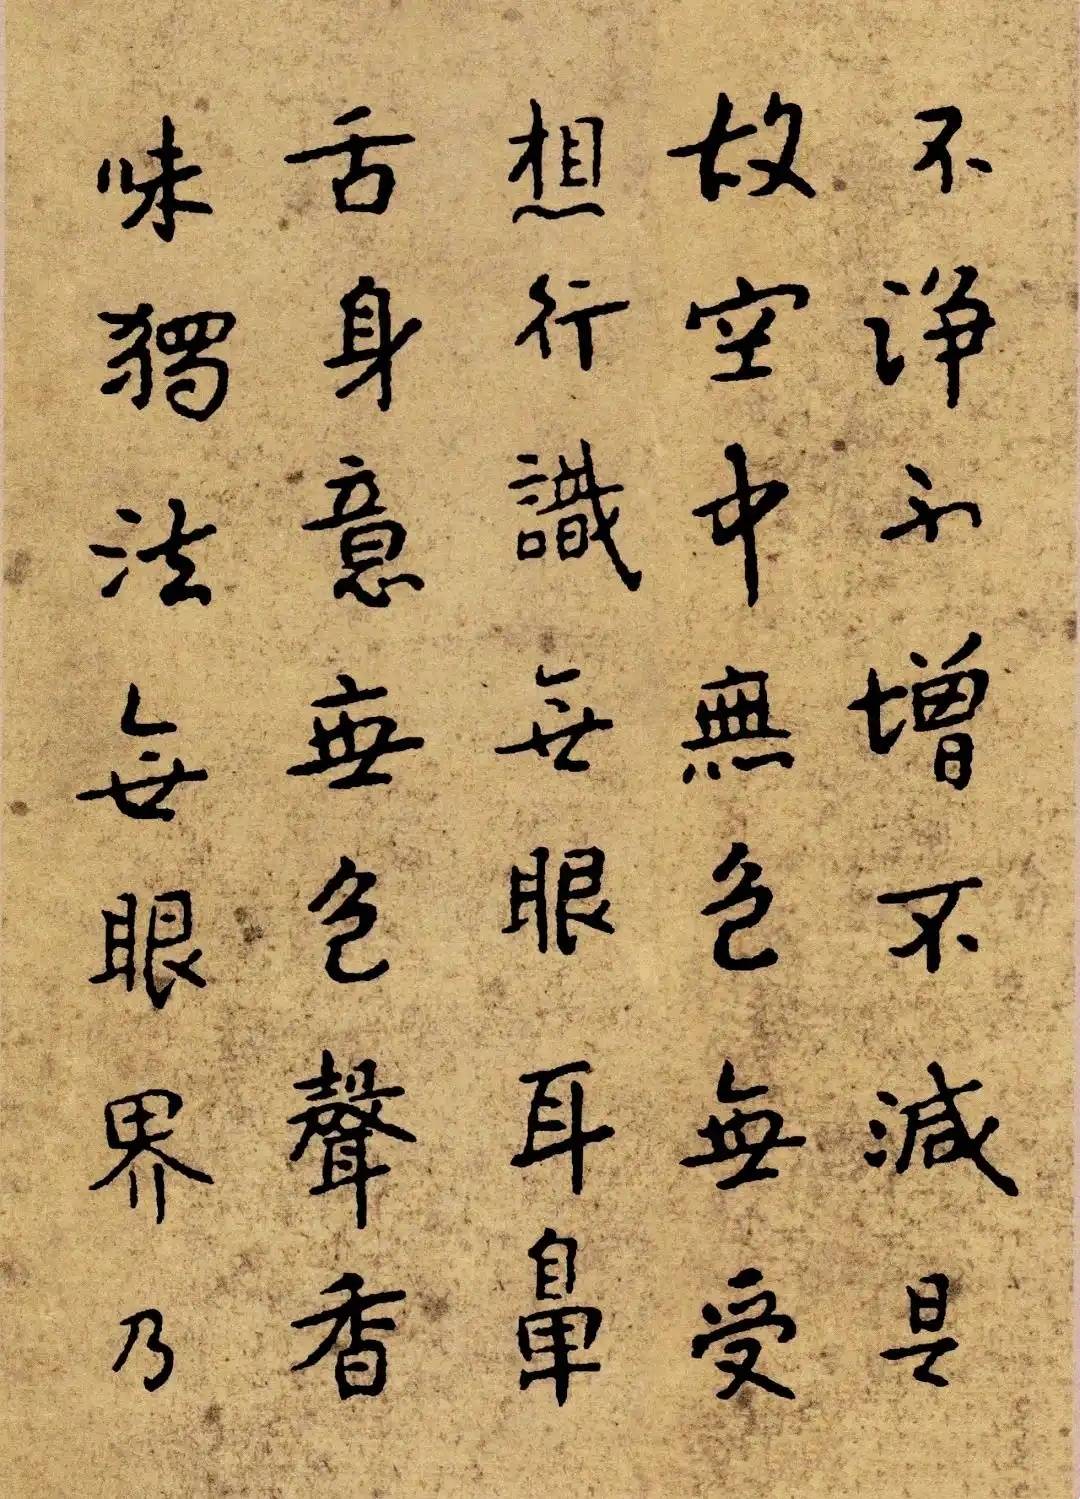 不諍不增不減是
故空中無色無受
想行識無眼耳鼻
舌身意無色聲香
味獨法無眼界乃